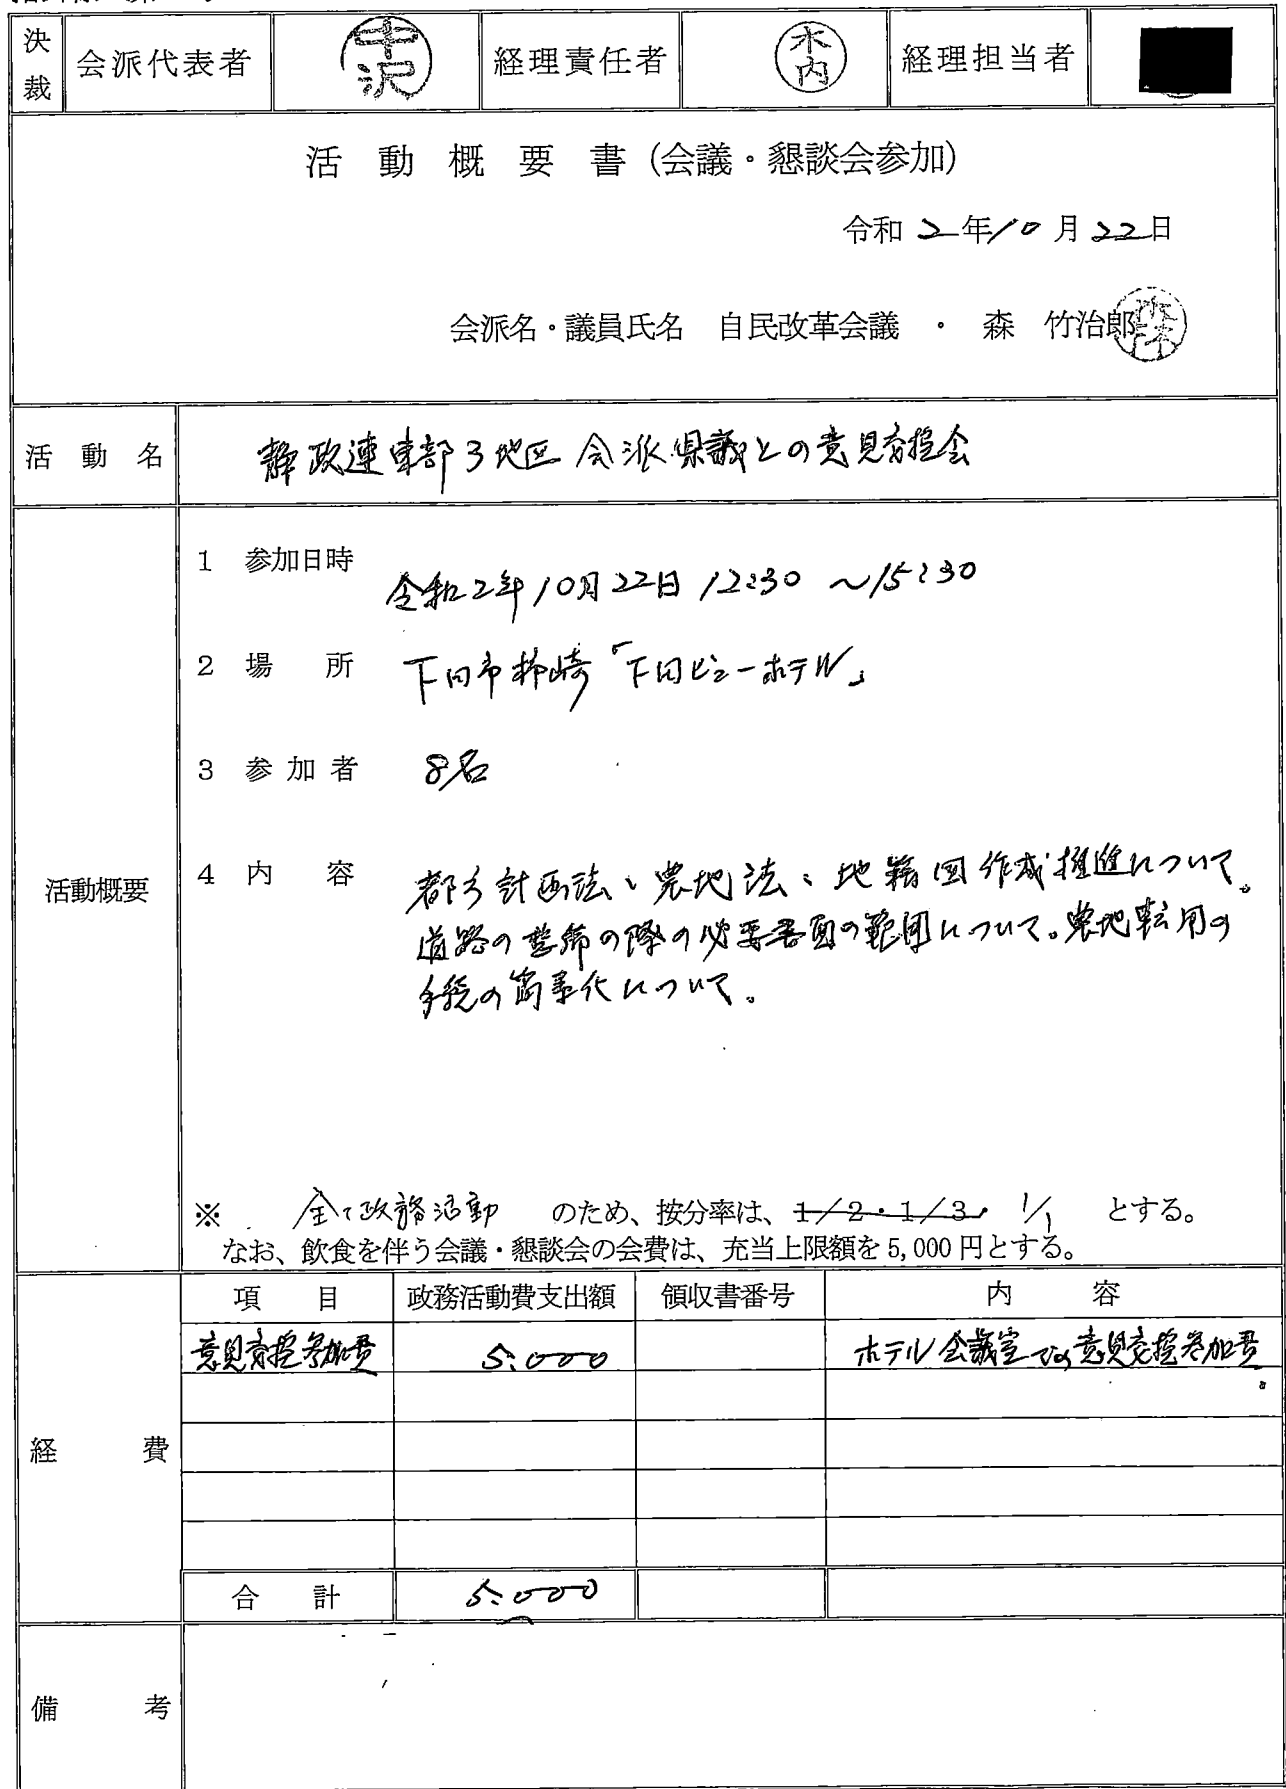 決裁 会派代表者 中沢 経理責任者 木内 経理担当者
活動概要書(会議・懇談会参加)
令和2年10月22日
会派名・議員氏名 自民改革会議 ・ 森 竹治郎
活動名 静政連東部3地区 会派県議との意見交換会
活動概要
1 参加日時 令和2年10月22日 12:30 ~15:30
2 場所 下田市柿崎「下田ビューホテル」
3 参加者 8名
4 内容 都市計画法、農地法、地籍図作成推進について。
道路の整備の際の必要書面の範囲について。農地転用の
手続の簡素化について。
※ 全て政務活動 のため、按分率は、1/2・1/3・ 1/1 とする。
なお、飲食を伴う会議・懇談会の会費は、充当上限額を5,000円とする。
経費
項目 政務活動費支出額 領収書番号 内容
意見交換参加費 5,000 ホテル会議室での意見交換参加費。
合計 5,000
備考